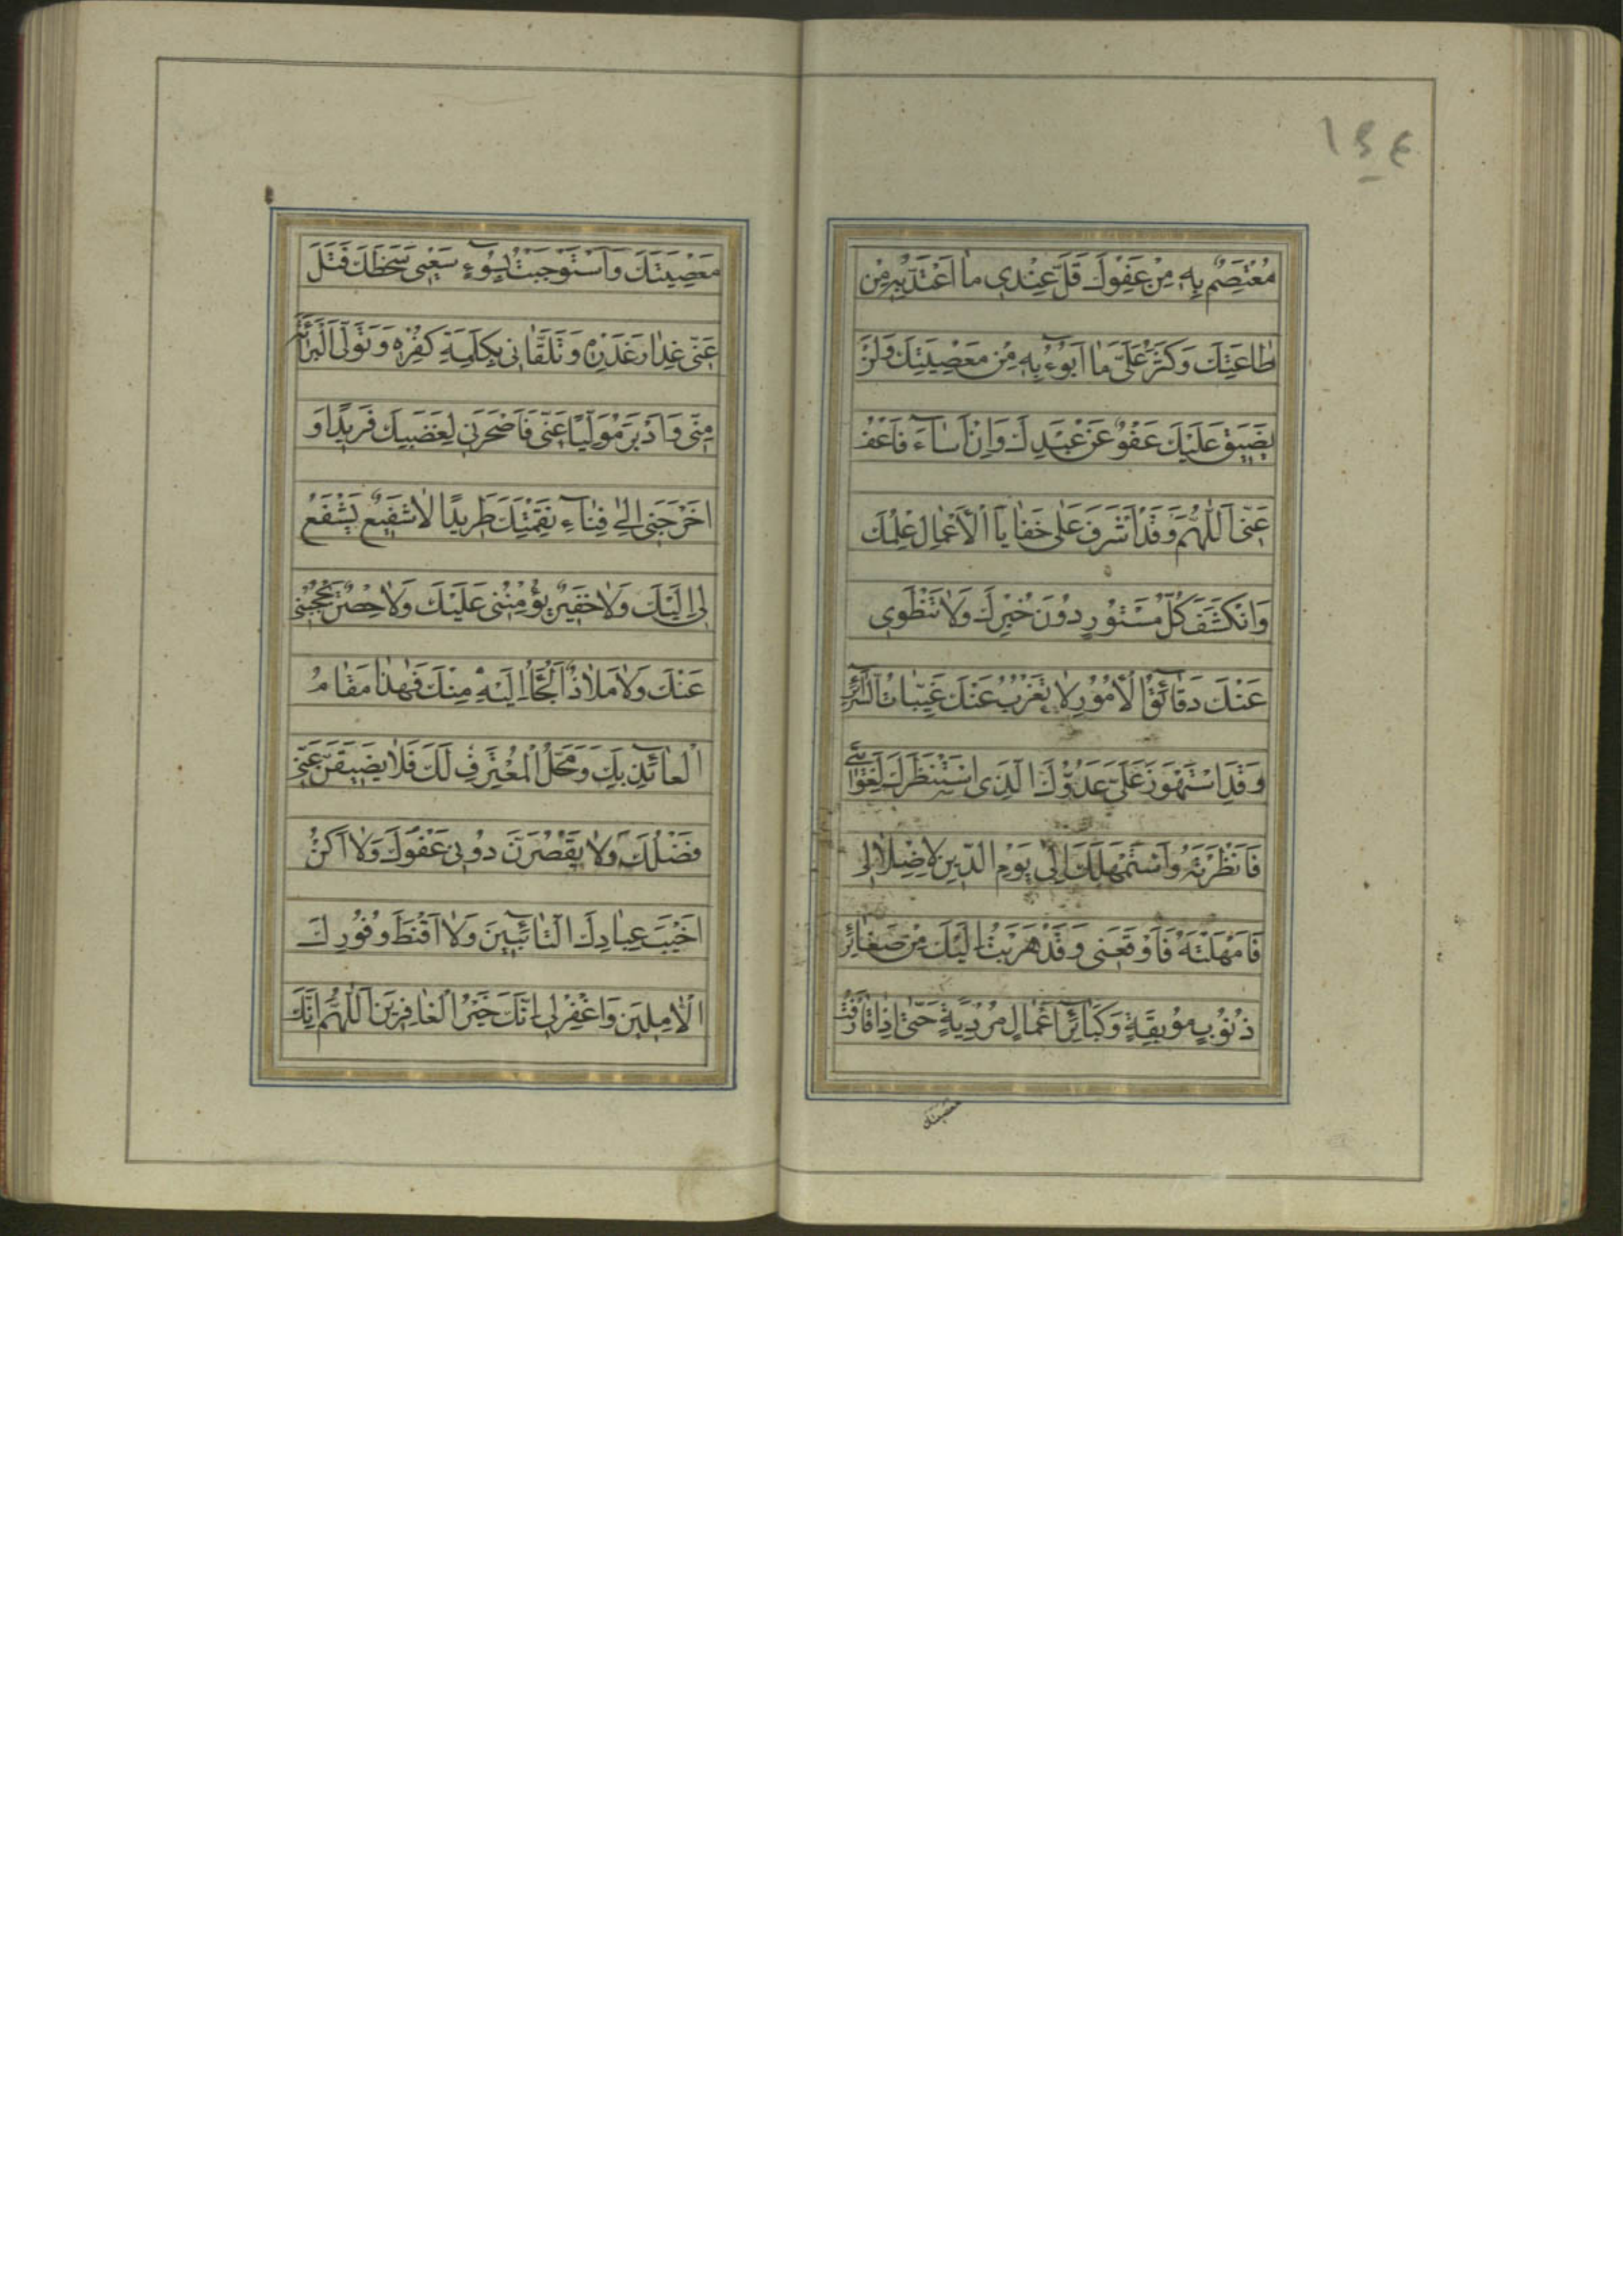 ١٤٤
مُعْتَصَمٌ بِهِ مِنْ عَفْوِكَ قَلَّ عِنْدِي مَا اَعْتَدُّ بِهِ مِنْ
طَاعَتِكَ وَكَثُرَ عَلَىَّ مَا اَبُوءُ بِهِ مِنْ مَعْصِيَتِكَ وَلَنْ
يَضَيقَ عَلَيْكَ عَفْوٌ عَنْ عَبْدِكَ وَاِنْ اَسَآءَ فَاعْفُ
عَنّى اَللّٰهُمَّ وَقَدْ اَشْرَفَ عَلٰى خَفَايَا الْاَعْمَالِ عِلْمُكَ
وَانْكَشَفَ كُلُّ مَسْتُورٍ دُونَ خُبْرِكَ وَلَا تَنْطَوِى
عَنْكَ دَقَآئِقُ الْاُمُورِ لَا يَعْزُبُ عَنْكَ غَيِّبَاتُ السَّرَآئِرِ
وَقَدِ اسْتَحْوَذَ عَلَىَّ عَدُوُّكَ الَّذِى اسْتَنْظَرَكَ لِغَوَايَتِى
فَاَنْظَرْتَهُ وَاسْتَمْهَلَكَ اِلٰى يَوْمِ الدّينِ لِاِضْلَالِى
فَاَمْهَلْتَهُ فَاَوْقَعَنى وَقَدْ هَرَبْتُ اِلَيْكَ مِنْ صَغَآئِرِ
ذُنُوبٍ مُوبِقَةٍ وَكَبَآئِرِ اَعْمَالٍ مُرْدِيَةٍ حَتّٰى اِذَا قَارَفْتُ
معصيتك
مَعْصِيَتَكَ وَاسْتَوْجَبْتُ بِسُوٓءِ سَعْيى سَخَطَكَ فَتَلَ
عَنّى عِذَارَ غَدْرِهِ وَتَلَقَّانى بِكَلِمَةِ كُفْرِهِ وَتَوَلَّى الْبَرَآئَةَ
مِنّى وَاَدْبَرَ مُوَلِّيًا عَنّى فَاَصْحَرَنى لِغَضَبِكَ فَرِيدًا وَ
اَخْرَجَنى اِلٰى فِنَآءِ نَقِمَتِكَ طَرِيدًا لَا شَفِيعٌ يَشْفَعُ
لى اِلَيْكَ وَلَا خَفِيرٌ يُؤْمِنُنى عَلَيْكَ وَلَا حِصْنٌ يَحْجُبُنى
عَنْكَ وَلَا مَلَاذٌ اَلْجَاُ اِلَيْهِ مِنْكَ فَهٰذَا مَقَامُ
الْعَآئِذِ بِكَ وَمَحَلُّ الْمُعْتَرِفِ لَكَ فَلَا يَضيقَنَّ عَنّى
فَضْلُكَ وَلَا يَقْصُرَنَّ دُونى عَفْوُكَ وَلَا اَكُنْ
اَخْيَبَ عِبَادِكَ التَّآئِبينَ وَلَا اَقْنَطَ وُفُودِكَ
الْاٰمِلينَ وَاغْفِرْ لى اِنَّكَ خَيْرُ الْغَافِرينَ اَللّٰهُمَّ اِنَّكَ